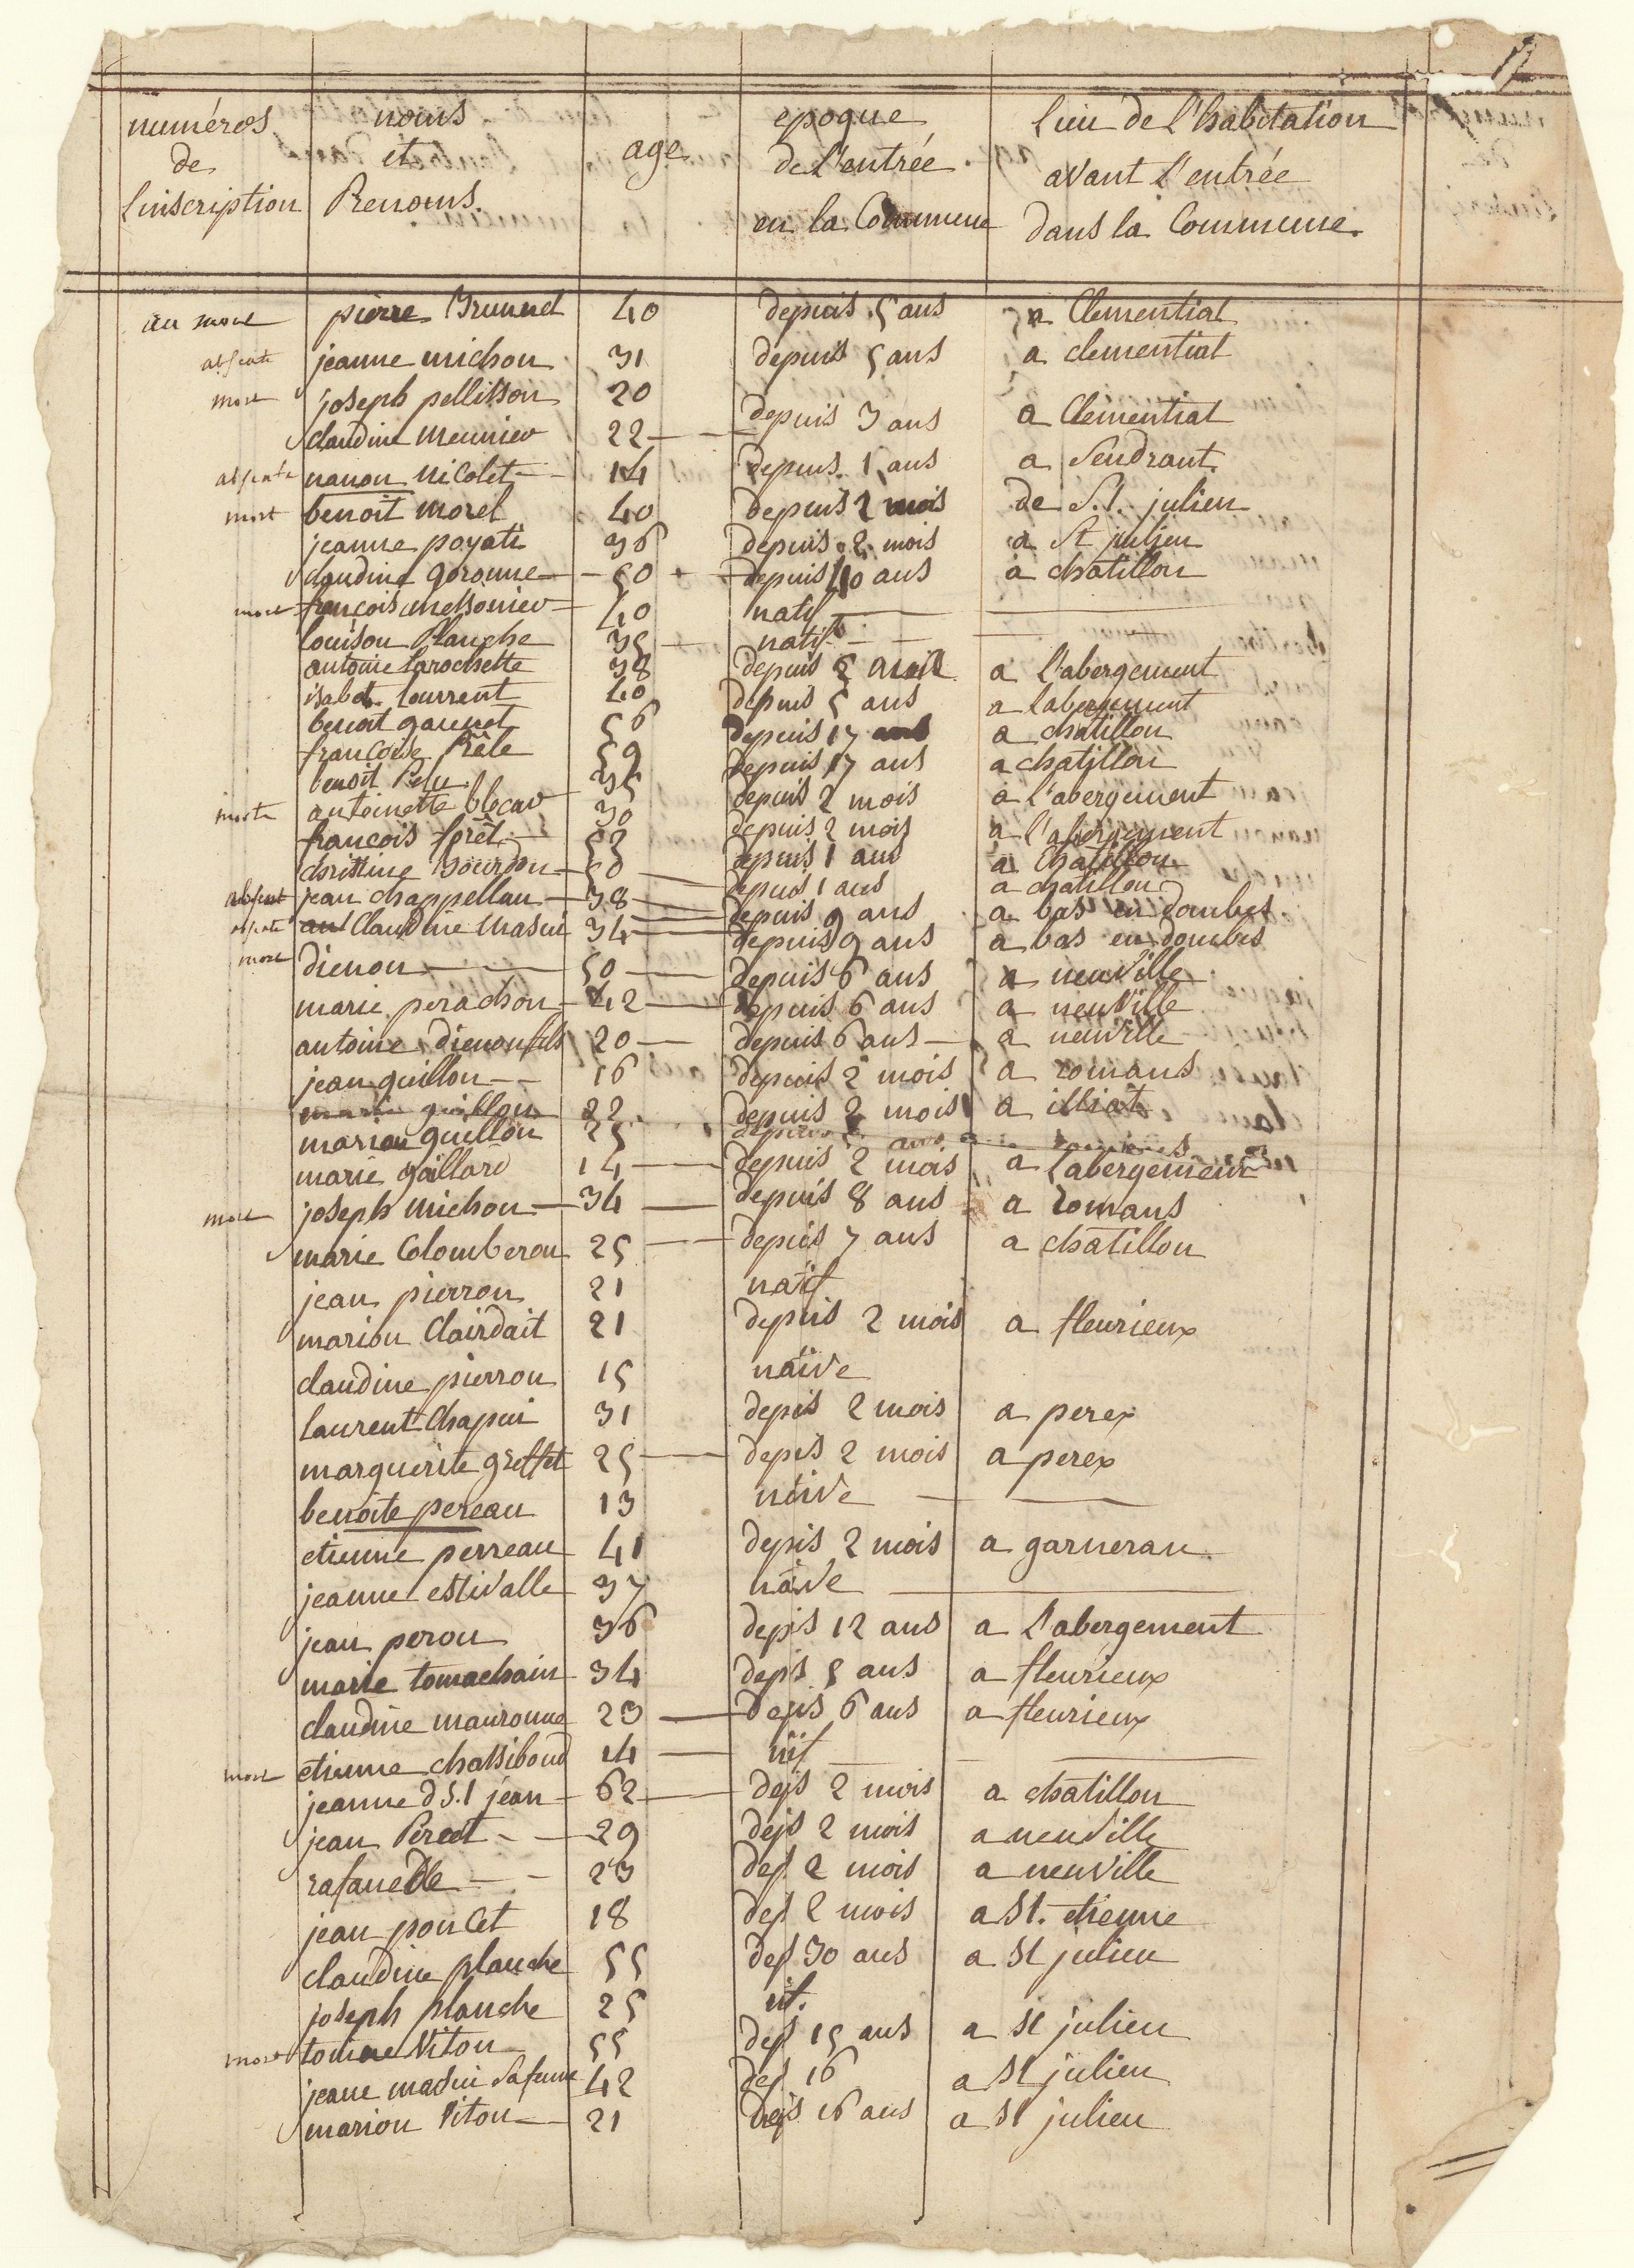 17
numéros noms age epoque lieu de l'habitation
de et de l'entrée avant l'entrée
l'inscription Prenoms. en la Commune dans la Commune.
mort pierre Brunnet 40 depuis 5 ans a Clementiat
absente jeanne michon 31 depuis 5 ans a clementiat
mort joseph pellisson 20
claudine meunier 22 depuis 3 ans a Clementiat
absente nanon nicolet 14 depuis 1 ans a Sendrant
mort benoit morel 40 depuis 2 mois de S.t. julien
jeanne poyati 36 depuis 2 mois a St julien
claudine goronne 50 depuis 10 ans a chatillon
mort françois messonier 40 natif
louison Planche 35 natif
antoine larochette 38 depuis 5 a l'abergement
isabet laurrent 40 depuis 5 ans a labergement
benoit gaunet 56 depuis 17 ans a chatillon
françoise Prêle 59 depuis 17 ans a chatillon
benoit Pelu 35 depuis 2 mois a l'abergement
morte antoinette blecar 30 depuis 2 mois a l'abergement
françois forêt 53 depuis 1 ans a Chatillon
christine Bourdon 50 depuis 1 ans a chatillon
absent jean chappellan 38 depuis 9 ans a bas en dombes
absente Claudine Masui 34 depuis 9 ans a bas en dombes
mort dienon 50 depuis 6 ans a neuville
marie perachon 42 depuis 6 ans a neuville
antoine dienon fils 20 depuis 6 ans a neuville
jean guillon 16 depuis 2 mois a romans
marie guillon 22 depuis 2 mois a illiat
marion guillon 25 depuis 5 ans a romans
marie gaillard 14 depuis 2 mois a l'abergement
mort joseph michon 34 depuis 8 ans a romans
marie Colomberon 25 depuis 7 ans a chatillon
jean pierron 21 natif
marion Clairdait 21 depuis 2 mois a fleurieux
claudine pierron 15 naive
laurent Chapui 31 depis 2 mois a perex
marguerite greffet 25 depis 2 mois a perex
benoite pereau 13 naive
etienne perreau 41 depis 2 mois a garneran
jeanne estivalle 37 naive
jean peron 36 depis 12 ans a l'abergement
marie tomachain 34 depis 5 ans a fleurieux
claudine mauronne 23 depis 6 ans a fleurieux
mort etienne chassiboud 14 nit
jeanne d S.t jean 62 dejs 2 mois a chatillon
jean Peret 29 dejs 2 mois a neuville
rafanelle 23 def 2 mois a neuville
jean poncet 18 def 2 mois a St. etienne
claudine planche 55 def 30 ans a St julien
joseph planche 25 nt.
mort toine Viton 55 def 15 ans a St julien
jeane madui sa feme 42 def 16 a St julien
marion Viton 21 dejs 16 ans a St julien